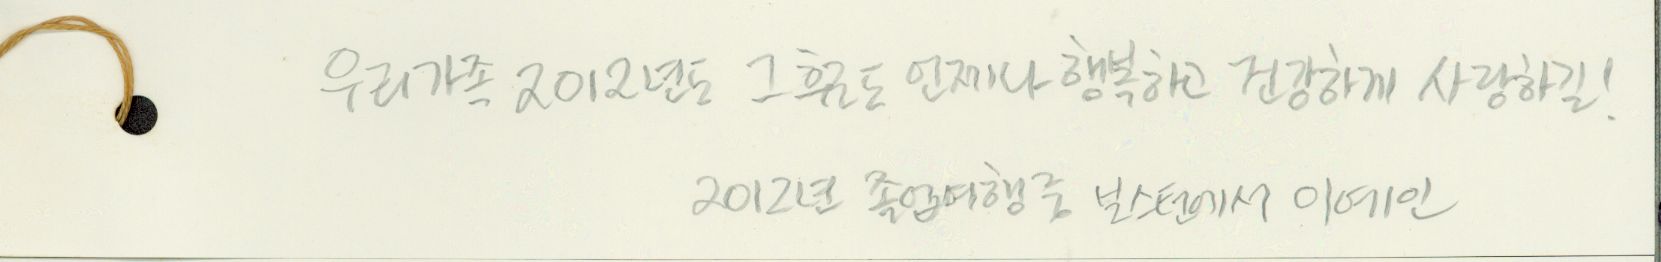 우리가족 2012년도 그 후로도 언제나 행복하고 건강하게 사랑하길!
2012년 졸업여행중 보스턴에서 이예인